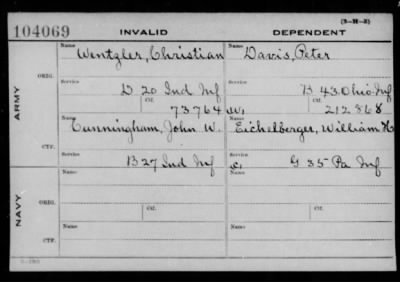 (3-H-2)
104069 INVALID DEPENDENT
Name Name
Wentzler, Christian Davis, Peter
ORIG.
Service Service
D 20 Ind Inf B 43 Ohio Inf
Ctf. Ctf.
73764 W, 212868
ARMY
Name Name
Cunningham, John W. Eichelberger, William H
CTF.
Service Service
B 27 Ind Inf G 35 Pa Inf
ORIG. Ctf. Ctf.
NAVY
CTF.